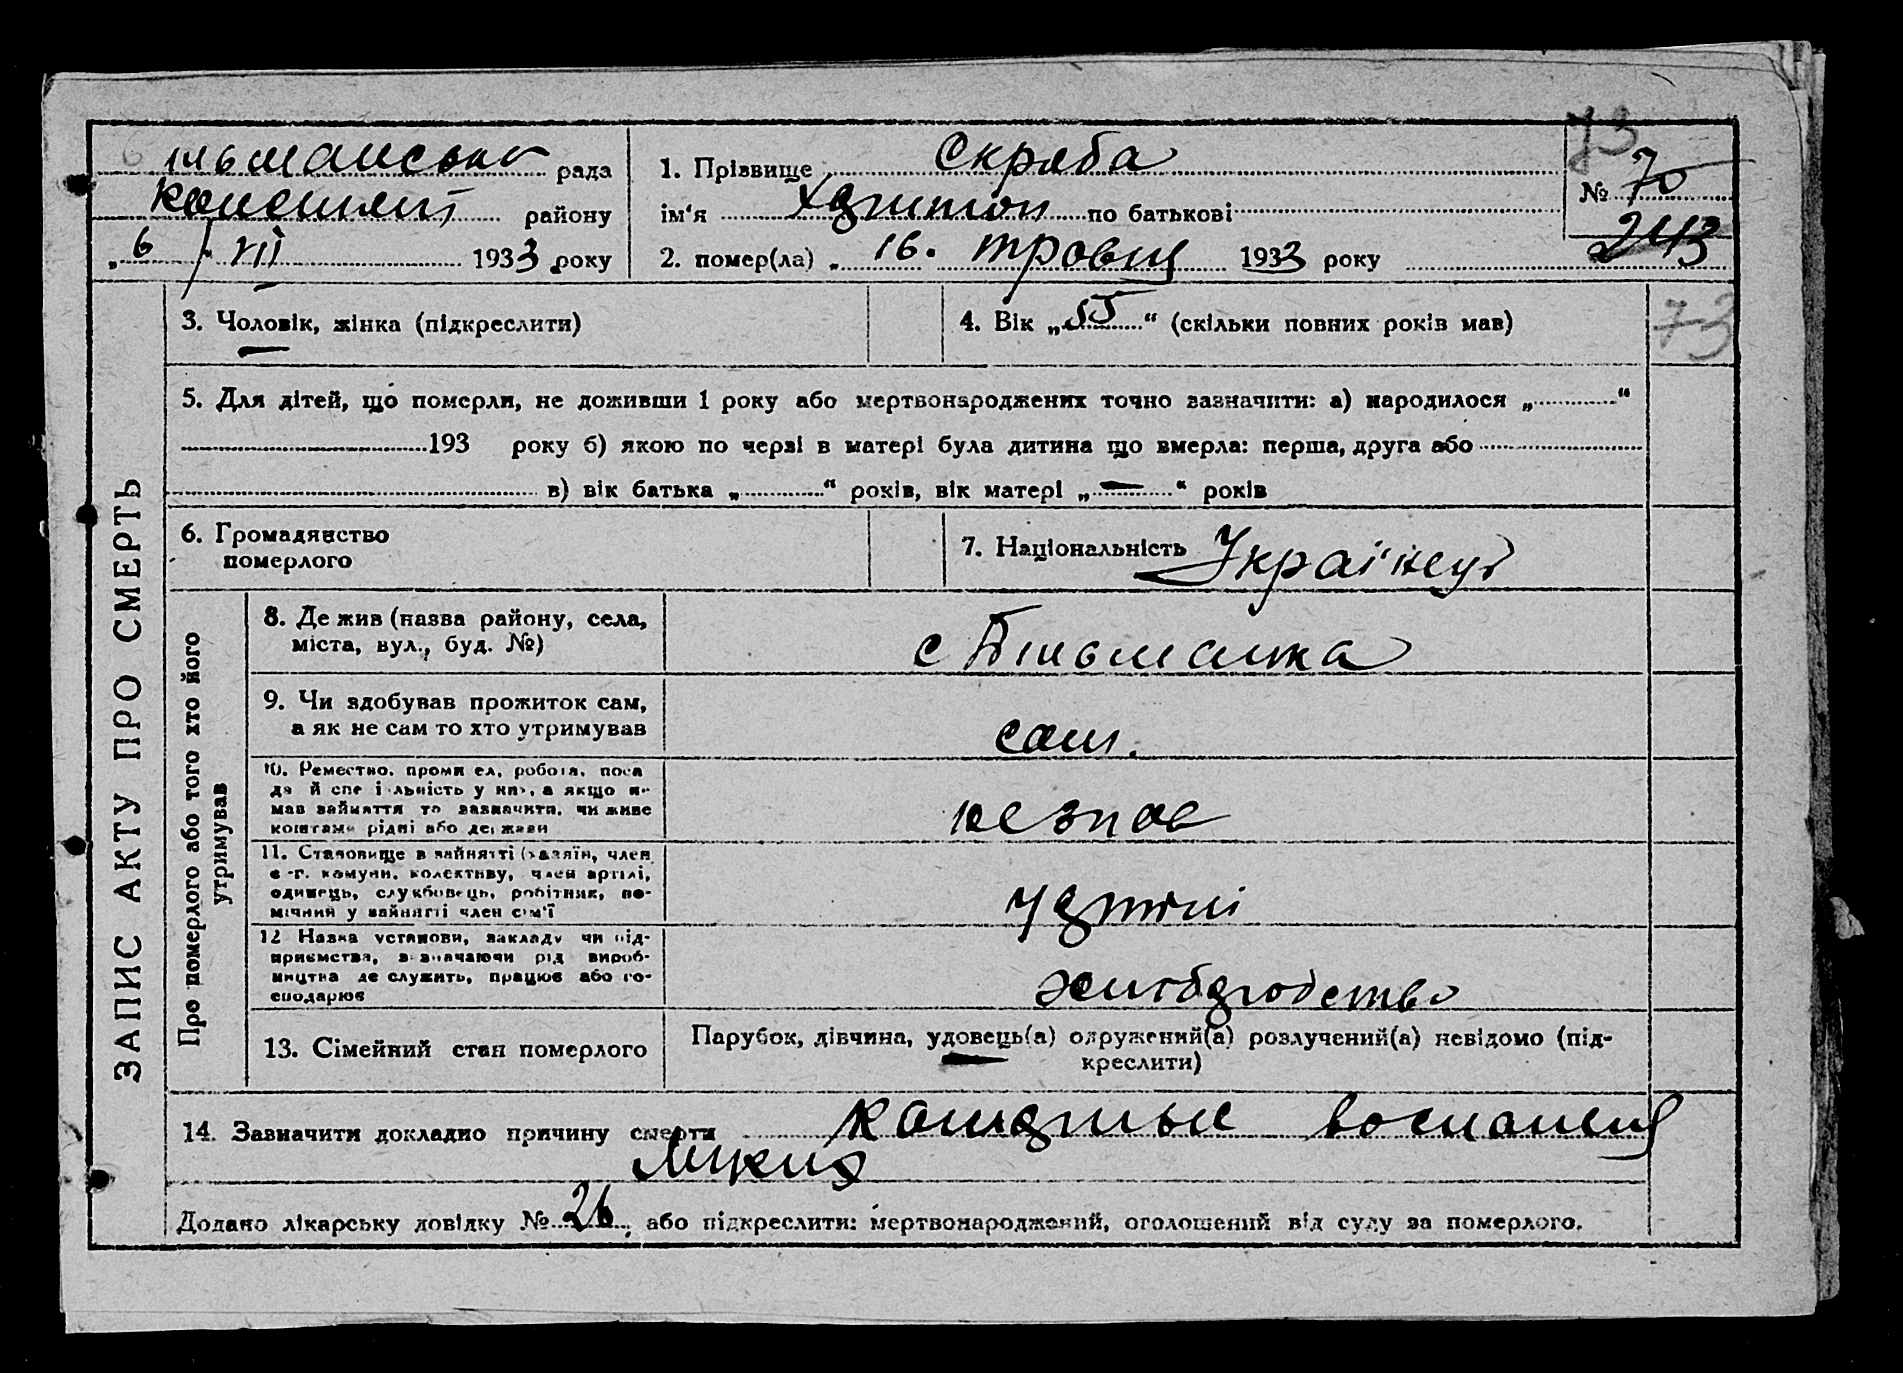 73
рада
1. Прізвище Скряба
№ 70
району
ім'я Харитон по батькові
243
„6 / VII 1933 року
2. помер(ла) „ 16. травня 1933 року
3. Чоловік, жінка (підкреслити)
4. Вік „55“ (скільки повних років мав)
73
5. Для дітей, що померли, не доживши 1 року або мертвонароджених точно зазначити: а) народилося „ “
193 року б) якою по черзі в матері була дитина що вмерла: перша, друга або
в) вік батька „ “ років, вік матері „ — “ років
6. Громадянство
померлого
7. Національність Українець
ЗАПИС АКТУ ПРО СМЕРТЬ
Про померлого або того хто його
утримував
8. Де жив (назва району, села,
міста, вул., буд. №)
с
9. Чи здобував прожиток сам,
а як не сам то хто утримував
сам.
10. Ремество, проми ел, робота, поса
да й спе і льність у ни , а якщо н
мав зайняття то зазначити, чи живе
коштами рідні або держави
11. Становище в зайнятті (хазяїн, член
с -г. комуни, колективу, член артілі,
одинець, службовець, робітник, по-
мічний у зайнятті член сім'ї
12 Назва установи, закладу чи під-
приємства, зазначаючи рід вироб-
ництва де служить, працює або го-
сподарює
13. Сімейний стан померлого
Парубок, дівчина, удовець(а) одружений(а) розлучений(а) невідомо (під-
креслити)
14. Зазначити докладно причину смерти
Додано лікарську довідку № 26, або підкреслити: мертвонароджений, оголошений від суду за померлого.